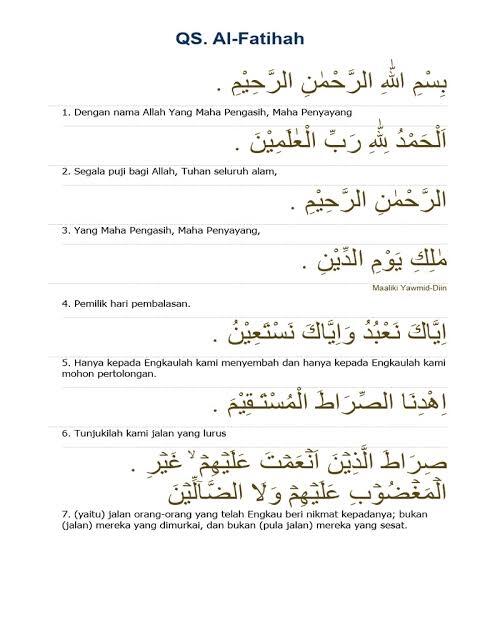 QS. Al-Fatihah
بِسْمِ اللّٰهِ الرَّحْمٰنِ الرَّحِيْمِ .
1. Dengan nama Allah Yang Maha Pengasih, Maha Penyayang
اَلْحَمْدُ لِلّٰهِ رَبِّ الْعٰلَمِيْنَ .
2. Segala puji bagi Allah, Tuhan seluruh alam,
الرَّحْمٰنِ الرَّحِيْمِ .
3. Yang Maha Pengasih, Maha Penyayang,
مٰلِكِ يَوْمِ الدِّيْنِ .
Maaliki Yawmid-Diin
4. Pemilik hari pembalasan.
اِيَّاكَ نَعْبُدُ وَاِيَّاكَ نَسْتَعِيْنُ .
5. Hanya kepada Engkaulah kami menyembah dan hanya kepada Engkaulah kami
mohon pertolongan.
اِهْدِنَا الصِّرَاطَ الْمُسْتَقِيْمَ .
6. Tunjukilah kami jalan yang lurus
صِرَاطَ الَّذِيْنَ اَنْعَمْتَ عَلَيْهِمْ ۙ غَيْرِ .
الْمَغْضُوْبِ عَلَيْهِمْ وَلَا الضَّاۤلِّيْنَ
7. (yaitu) jalan orang-orang yang telah Engkau beri nikmat kepadanya; bukan
(jalan) mereka yang dimurkai, dan bukan (pula jalan) mereka yang sesat.